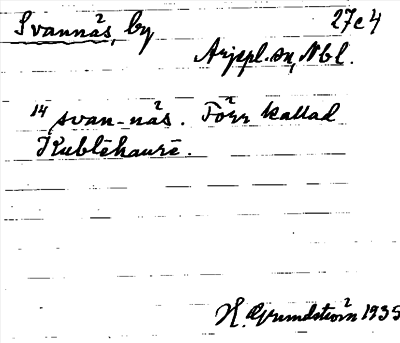 Svannäs, by 27c4
Arjepl. sn, Nbl.
14 svan-näs. Förr kallad
Kublehaure.
H. Grundström 1935